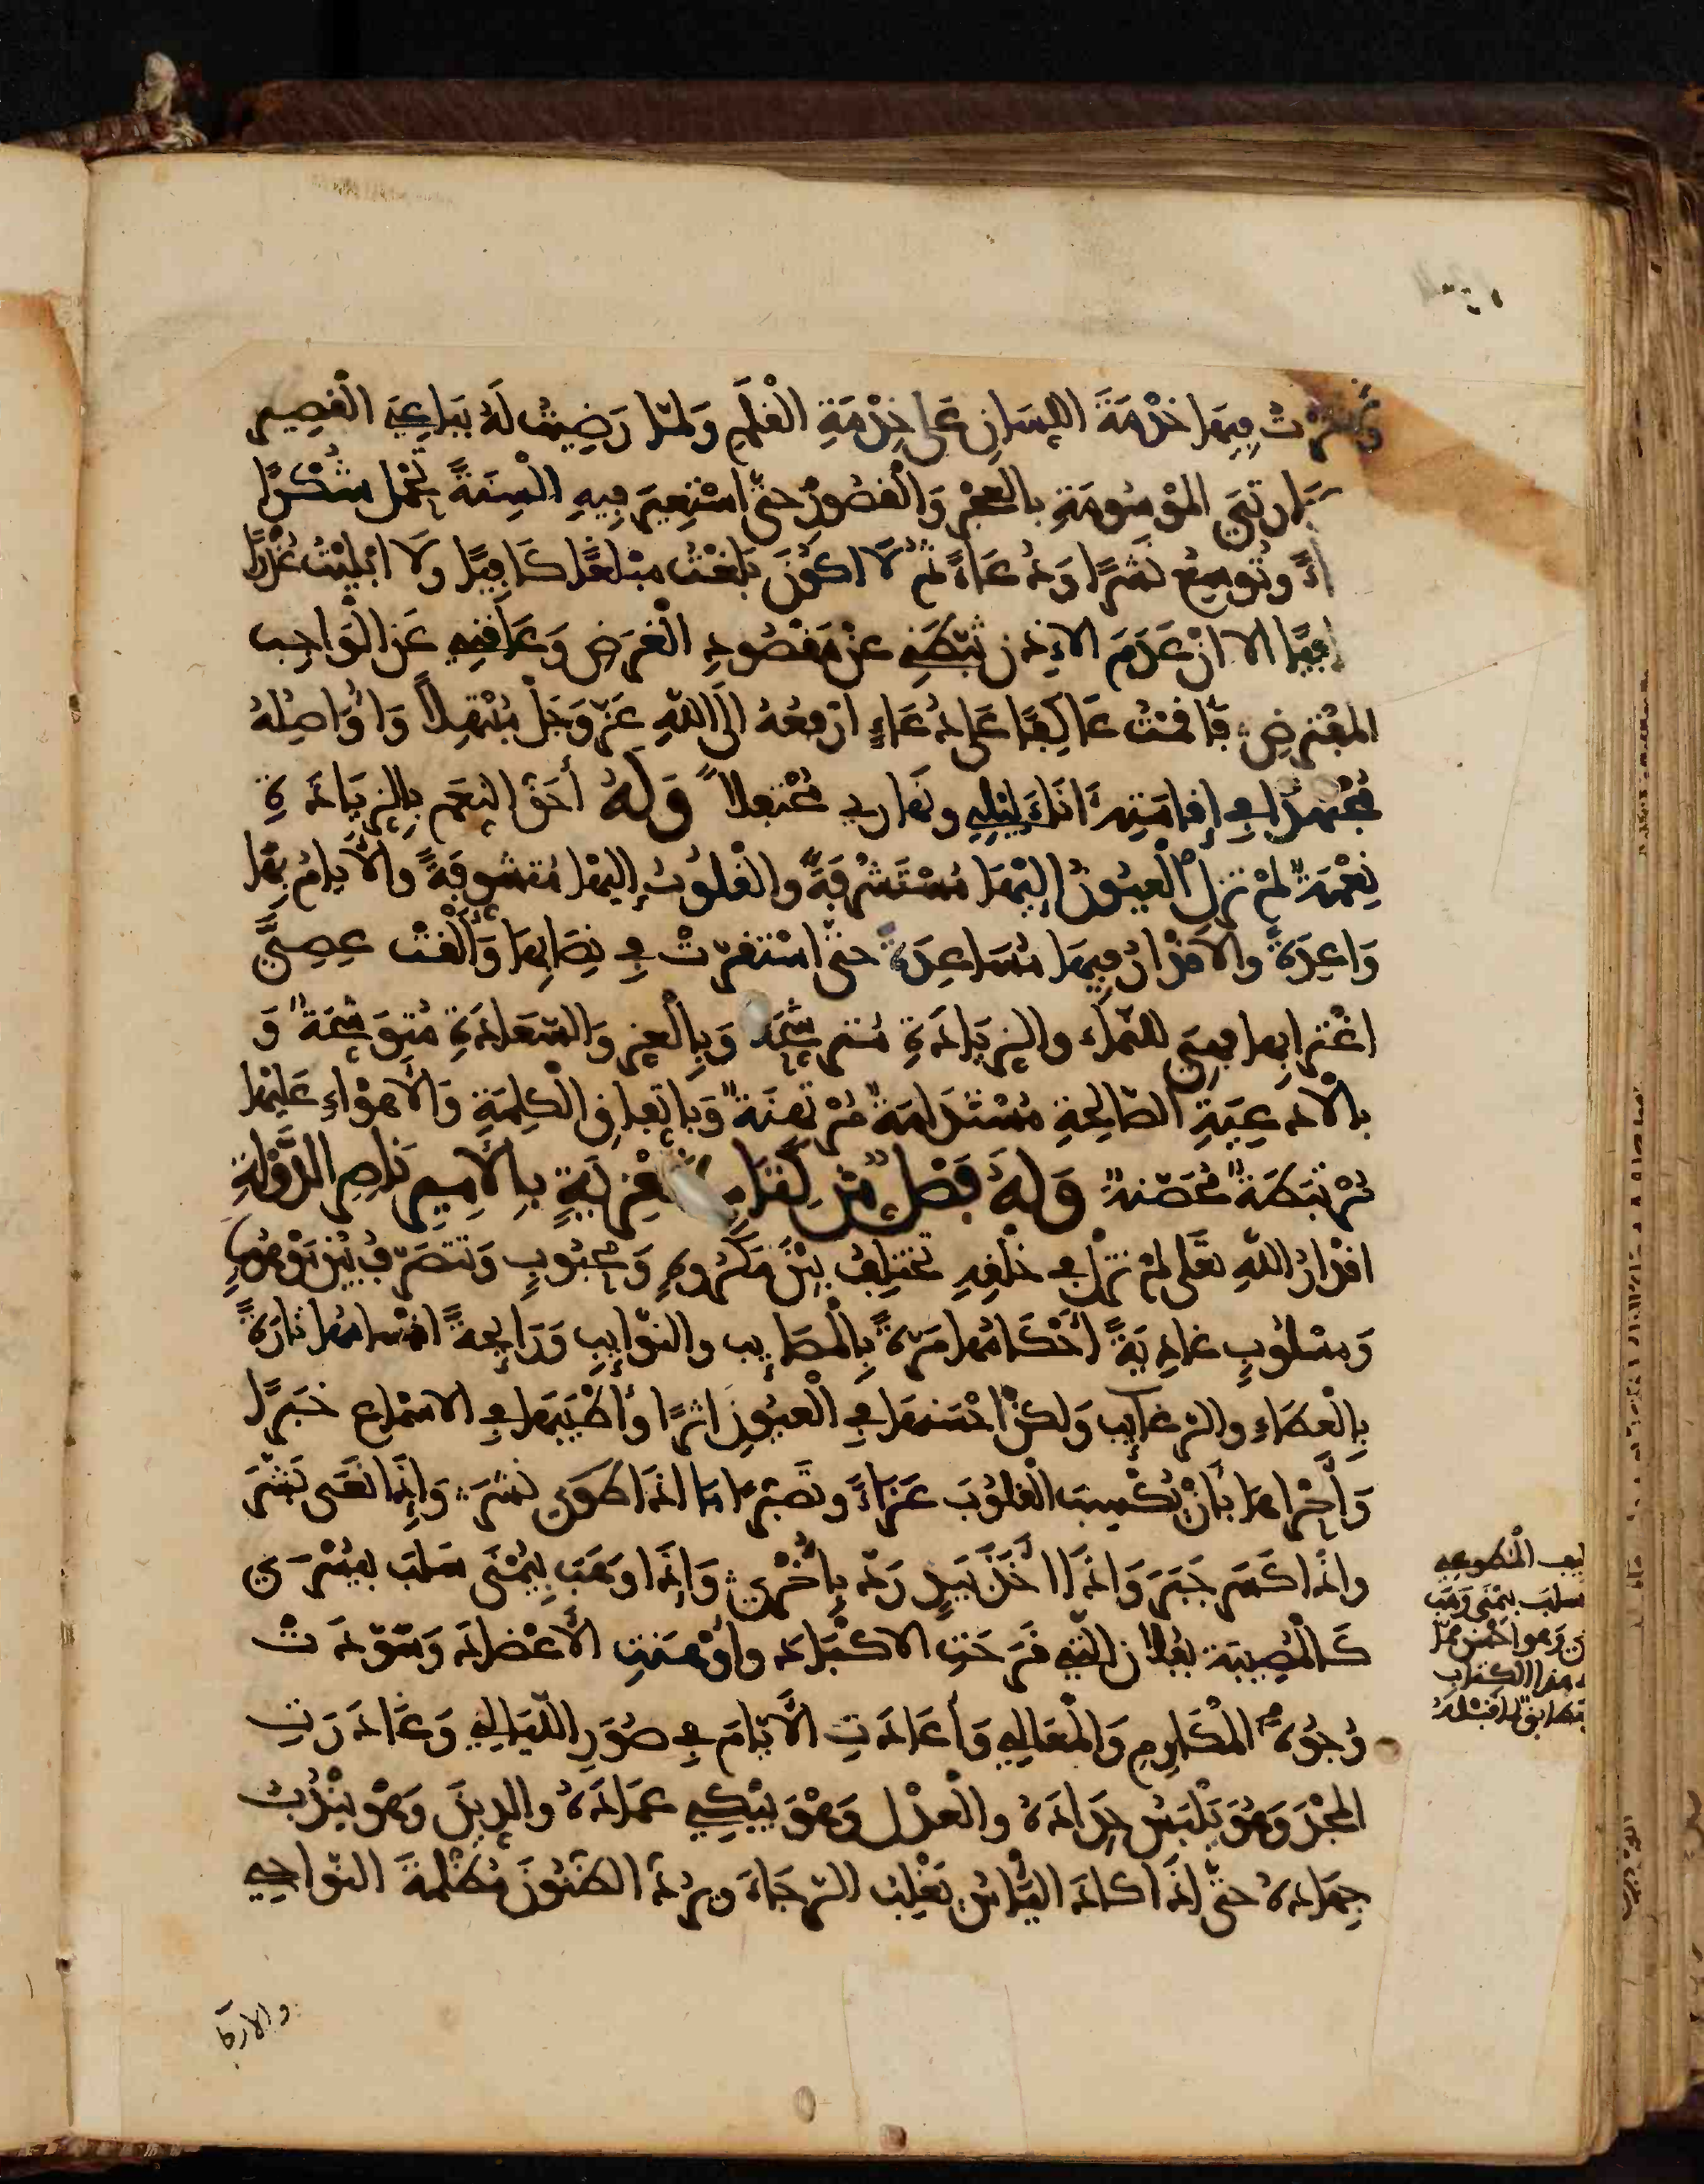 وَآثَرْتُ فِيهَا خِدْمَةَ اللِّسَانِ عَلَى خِدْمَةِ الْقَلَمِ وَلَمَّا رَضِيتُ لَهُ بِبَاعِيَ الْقَصِيرِ
الْمَوْسُومَةِ بِالْعَجْزِ وَالْقُصُورِ حَتَّى اسْتَعِيرَ فِيهِ أَلْسِنَةً تَحْمِلُ شُكْرًا
وَتُوسِعُ نَشْرًا وَدُعَاءً ثُمَّ لَا أَكُونُ بَلَغْتُ مَبْلَغًا كَافِيًا وَلَا أَبْلَيْتُ عُذْرًا
إلا أنْ عَدَمَ الإذن ثَبَّطَنِي عَنْ مَقْصُودِ الْغَرَضِ وَعَاقَنِي عَنِ الْوَاجِبِ
الْمُفْتَرَضِ فَأَقَمْتُ عَاكِفًا عَلَى دُعَاءٍ أَرْفَعُهُ إِلَى اللَّهِ عَزَّ وَجَلَّ مُبْتَهِلًا وَأُوَاصِلُهُ
مُجْتَهِدًا فِي إِقَامَتِهِ آنَاءَ لَيْلِي وَنَهَارِي مُحْتَفِلًا وَلَهُ أَحَقُّ النِّعَمِ بِالزِّيَادَةِ
نِعْمَةٌ لَمْ تَزَلِ الْعُيُونُ إِلَيْهَا مُسْتَشْرِفَةً وَالْقُلُوبُ إِلَيْهَا مُتَشَوِّفَةً وَالْأَيَّامُ بِهَا
وَاعِدَةً وَالْأَقْدَارُ فِيهَا مُسَاعِدَةً حَتَّى اسْتَقَرَّتْ فِي نِصَابِهَا وَأَلْقَتْ عِصِيَّ
اغْتِرَابِهَا فَهِيَ لِلنَّمَاءِ وَالزِّيَادَةِ مُتَرَشِّحَةٌ وَبِالْعِزِّ وَالسَّعَادَةِ مُتَوَشِّحَةٌ وَ
بِالْأَدْعِيَةِ الصَّالِحَةِ مُسْتَدَامَةٌ مُرْتَهَنَةٌ وَبِاتِّفَاقِ الْكَلِمَةِ وَالْأَهْوَاءِ عَلَيْهَا
مُرْتَبَطَةٌ مُحَصَّنَةٌ وَلَهُ فَصْلٌ مِنْ كِتَابِ تَعْزِيَةٍ بِالْأَمِيرِ نَاصِرِ الدَّوْلَةِ
أَقْدَارُ اللَّهِ تَعَالَى لَمْ تَزَلْ فِي خَلْقِهِ تَخْتَلِفُ بَيْنَ مَكْرُوهٍ وَمَحْبُوبٍ وَتَتَصَرَّفُ بَيْنَ مَوْهُوبٍ
وَمَسْلُوبٍ غَادِيَةً أَحْكَامُهَا مَرَّةً بِالْمَصَائِبِ وَالنَّوَائِبِ وَرَائِحَةً أَقْسَامُهَا تَارَةً
بِالْعَطَاءِ وَالرَّغَائِبِ وَلَكِنْ أَحْسَنُهَا فِي الْعُيُونِ أَثَرًا وَأَطْيَبُهَا فِي الْأَسْمَاعِ خَبَرًا
وَأَحْرَاهَا بِأَنْ تُكْسِبَ الْقُلُوبَ عَزَاءً وَتَصَبُّرًا مَا إِذَا طَوَى نَشَرَ وَإِذَا نَعَى بَشَّرَ
وَإِذَا كَسَرَ جَبَرَ وَإِذَا أَخَذَ بِيَدٍ رَدَّ بِأُخْرَى وَإِذَا وَهَبَ بِيُمْنَى سَلَبَ بِيُسْرَى
كَالْمُصِيبَةِ بِفُلَانٍ الَّتِي قَرَّحَتِ الْأَكْبَادَ وَأَوْهَنَتِ الْأَعْضَادَ وَسَوَّدَتْ
وُجُوهَ الْمَكَارِمِ وَالْمَعَالِي وَأَعَادَتِ الْأَيَّامَ فِي صُوَرِ اللَّيَالِي وَغَادَرَتِ
الْمَجْدَ وَهُوَ يَلْبَسُ حِدَادَهُ وَالْعَدْلَ وَهُوَ يَبْكِي عِمَادَهُ وَالدِّينَ وَهُوَ يَنْدُبُ
جِهَادَهُ حَتَّى إِذَا كَادَ الْيَأْسُ يَغْلِبُ الرَّجَاءَ وَيَرُدُّ الظُّنُونَ مُظْلِمَةَ النَّوَاحِي
سلب بيمنى وهب
هذا الكتاب